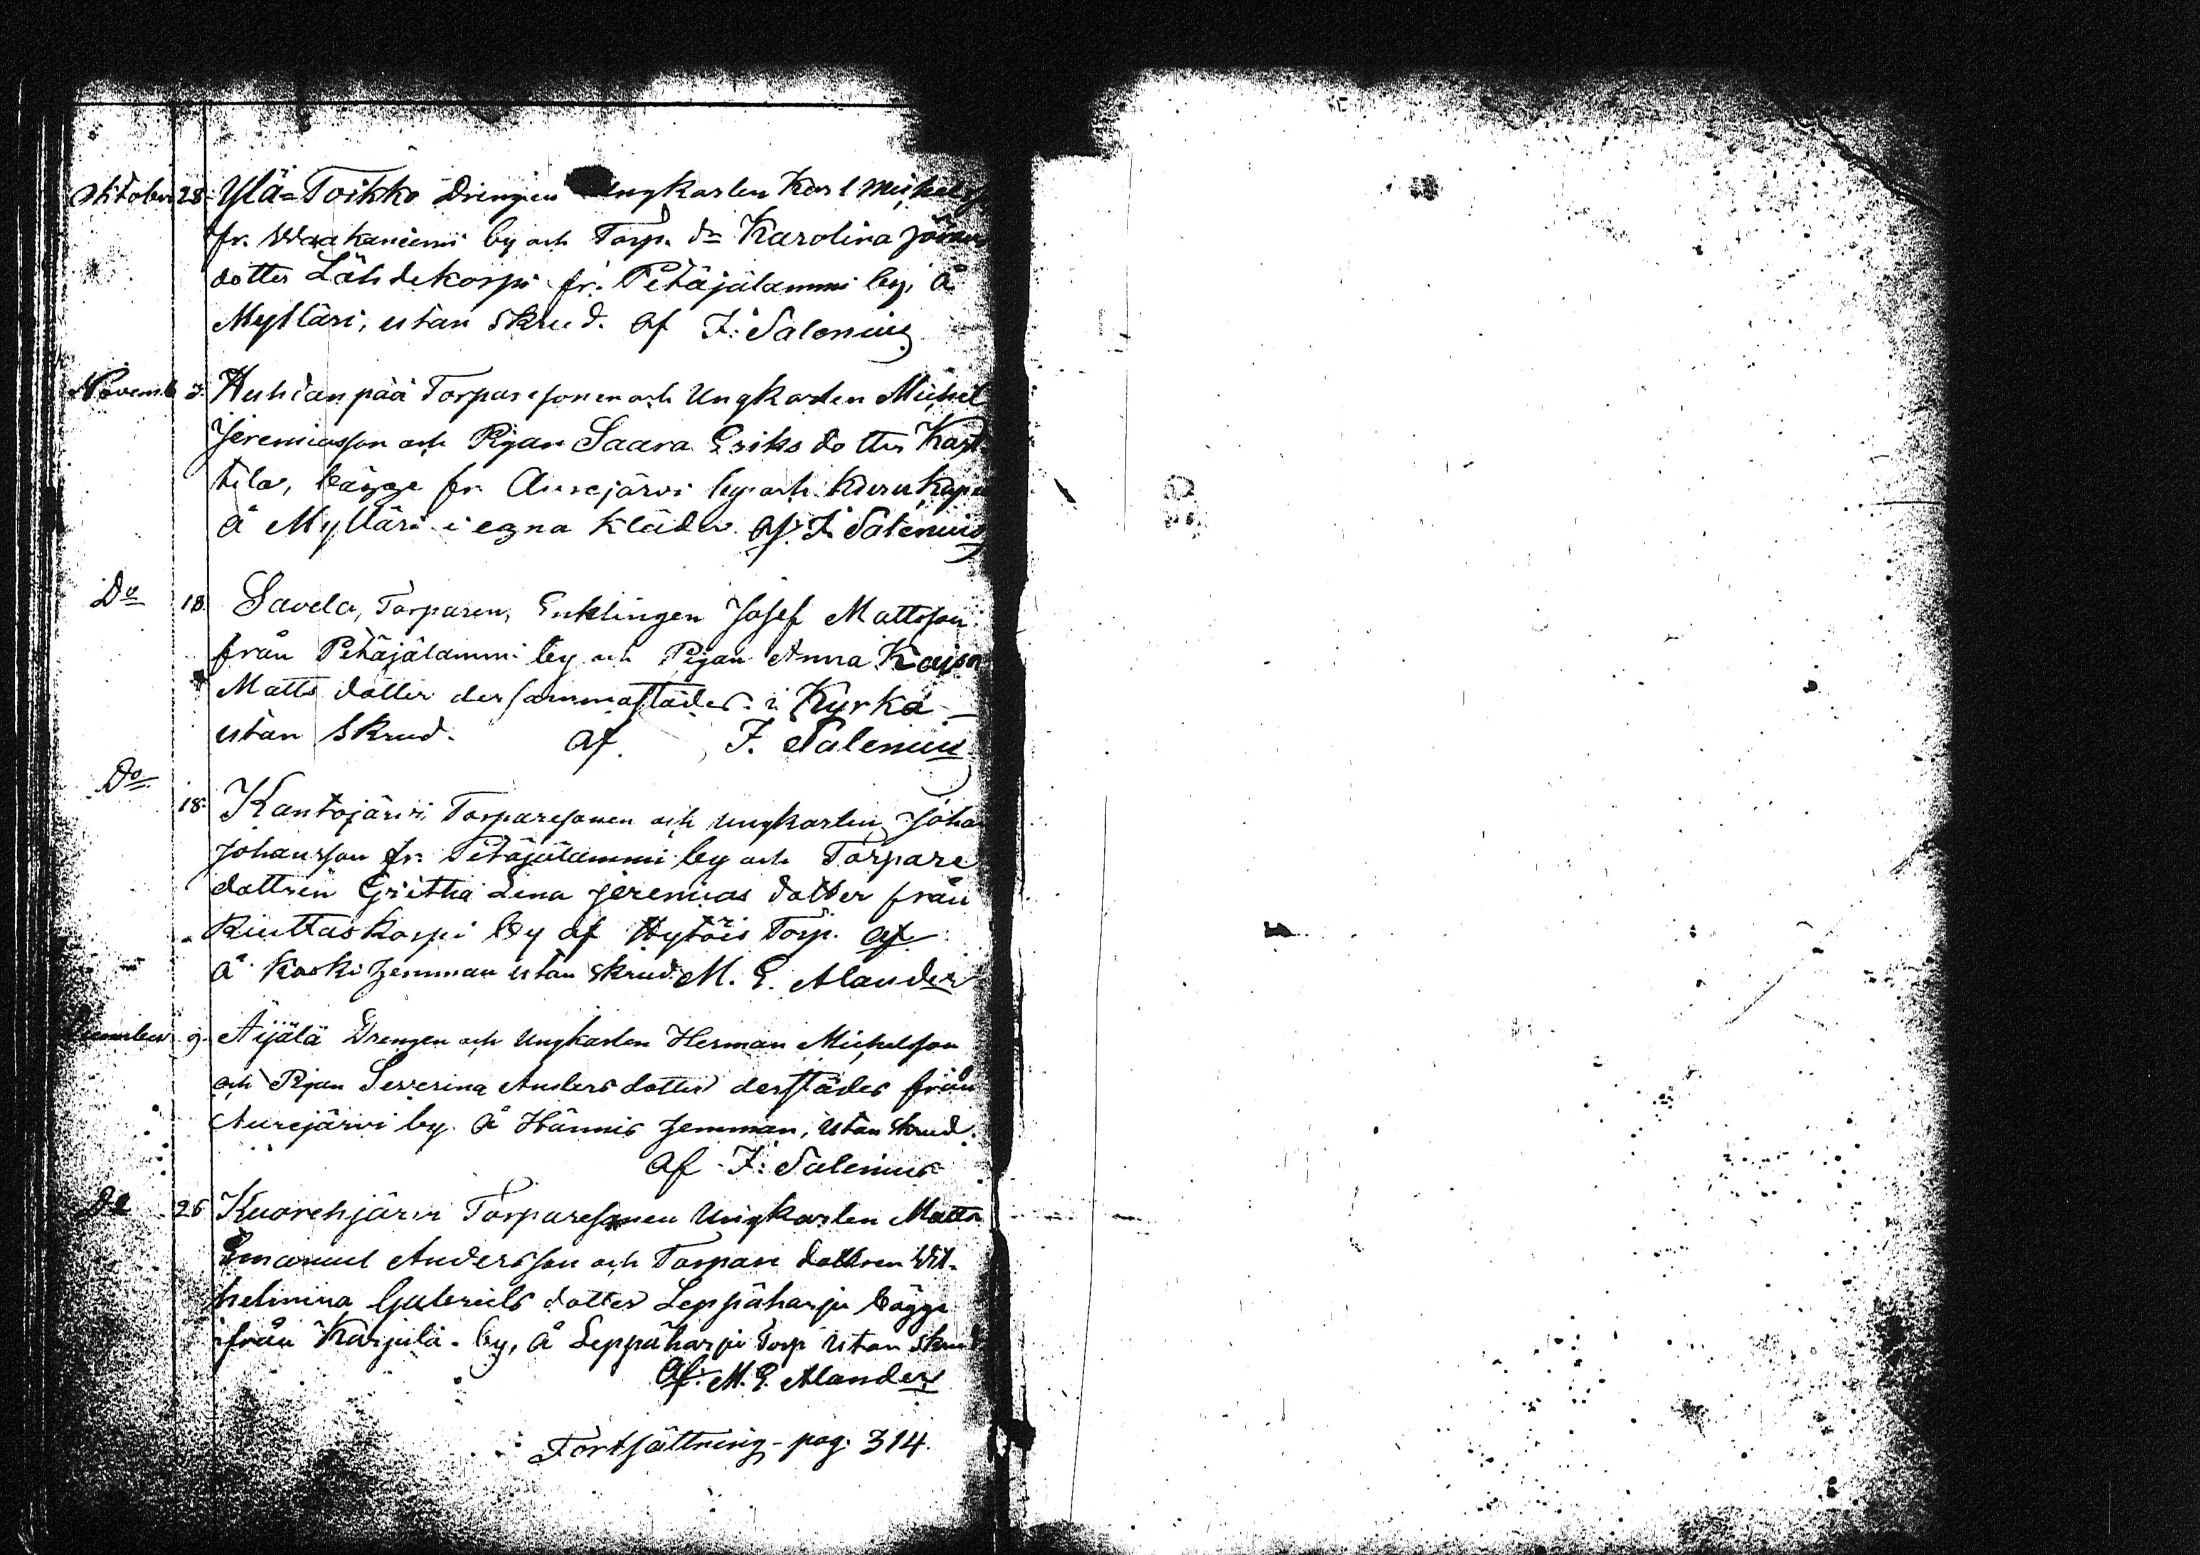 Oktober 28. Ylä-Toikko Drengen Ungkarlen Karl Michels
fr. Waakaniemi by och Torp. dr Karolina
dotter Lähdekorpi fr. Petäjälammi by, å
Mylläri, utan skrud. af F. Salenius
Novemb 3. Huhtanpää Torparesonen och Ungkarlen Michel
Jeremiasson och Pigan Saara Eriks dotter
tila, bägge fr. Aurejärvi by och Kuru Kapell
å Mylläri i egna kläder. af F. Salenius
Do 18. Savela, Torparen, Enklingen Josef Mattsson
från Petäjälammi by och Pigan Anna Kajsa
Matts dotter dersammastädes. i Kyrka
utan skrud. af F. Salenius
Do 18. Kantojärvi, Torparesonen och ungkarlen Joha
Johansson fr. Petäjälammi by och Torpare
dottren Gretha Lena Jeremias dotter från
Riuttaskorpi by af Hytöis Torp. af
å Koski hemman utan skrud. M. E. Alander
9. Äijälä Drengen och Ungkarlen Herman Michelsson
och Pigan Severina Anders dotter derstädes från
Aurejärvi by. å Hännis hemman, utan skrud.
af F. Salenius
Do 26 Kuorehjärvi Torparesonen Ungkarlen Matts
Emanuel Andersson och Torpare dottren Wil-
helmina Gabriels dotter Leppäharju bägge
ifrån Karjula by, å Leppäharju Torp utan skrud
af M. E. Alander
Fortsättning - pag. 314.